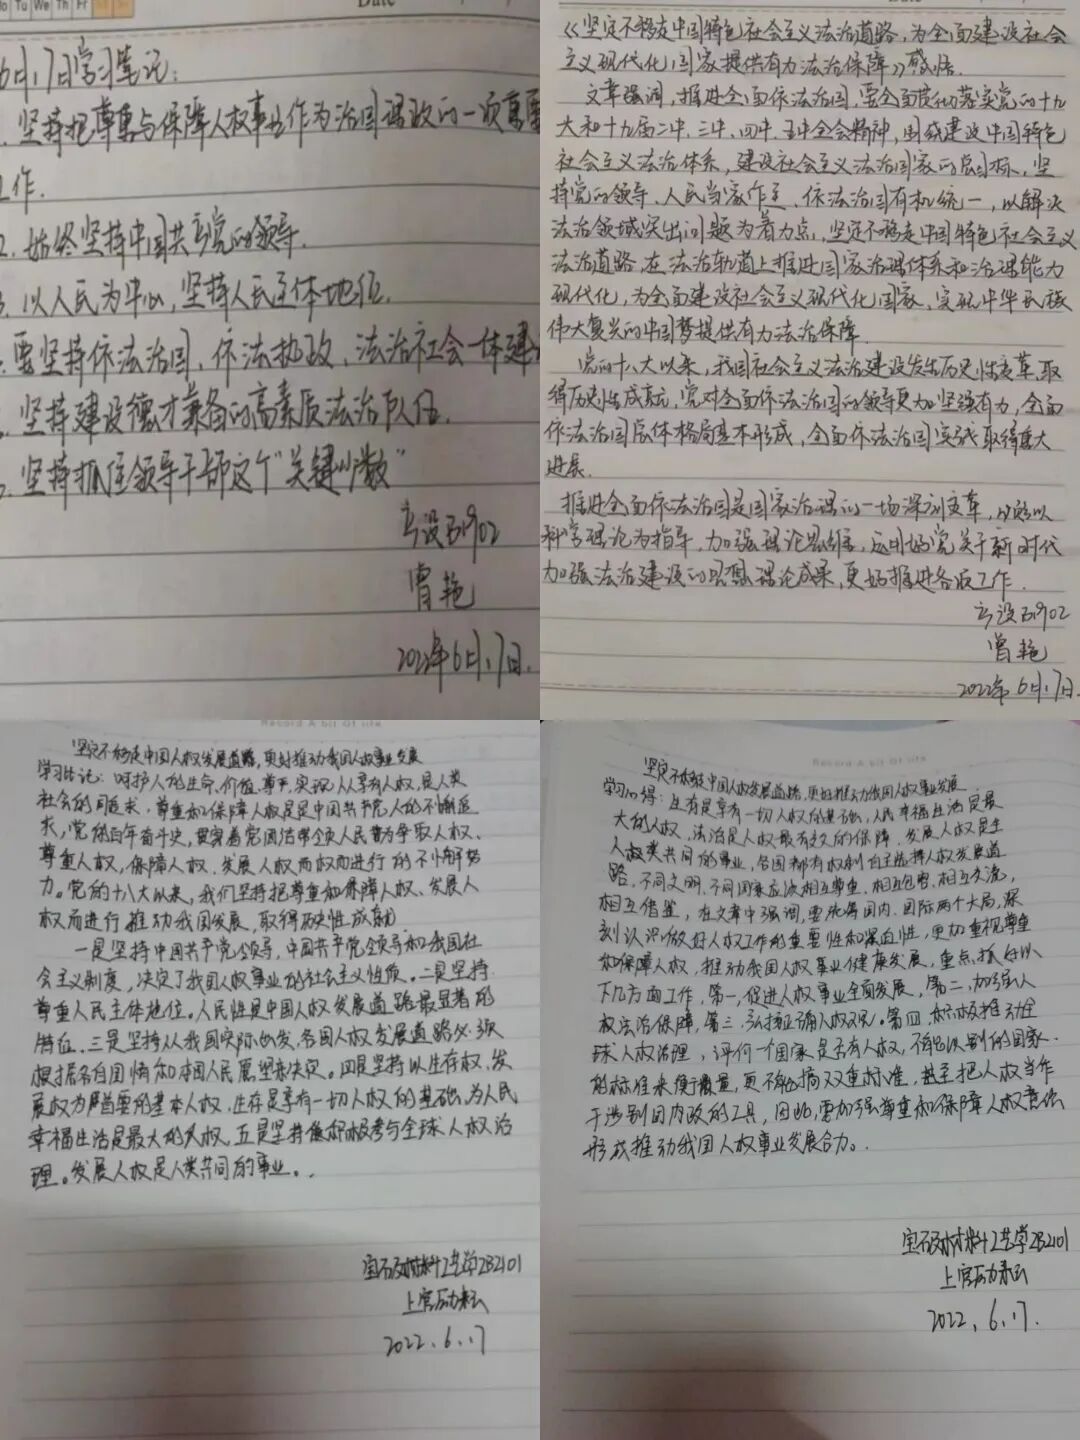 Mo Tu We Th Fr
Date
6月17日学习笔记:
1. 坚持把尊重与保障人权事业作为治国理政的一项重要
工作.
2. 始终坚持中国共产党的领导.
3. 以人民为中心,坚持人民主体地位.
要坚持依法治国、依法执政、法治社会一体建
坚持建设德才兼备的高素质法治队伍.
坚持抓住领导干部这个"关键少数"
产设B1902
曾艳
2022年6月17日.
《坚定不移走中国特色社会主义法治道路,为全面建设社会
主义现代化国家提供有力法治保障》感悟.
文章强调,推进全面依法治国,要全面贯彻落实党的十九
大和十九届二中、三中、四中、五中全会精神,围绕建设中国特色
社会主义法治体系,建设社会主义法治国家的总目标,坚
持党的领导、人民当家作主、依法治国有机统一,以解决
法治领域突出问题为着力点,坚定不移走中国特色社会主义
法治道路,在法治轨道上推进国家治理体系和治理能力
现代化,为全面建设社会主义现代化国家、实现中华民族
伟大复兴的中国梦提供有力法治保障.
党的十八大以来,我国社会主义法治建设发生历史性变革,取
得历史性成就,党对全面依法治国的领导更加坚强有力,全面
依法治国总体格局基本形成,全面依法治国实践取得重大
进展.
推进全面依法治国是国家治理的一场深刻变革,必须以
科学理论为指导,加强理论思维,运用好党关于新时代
加强法治建设的思想理论成果,更好推进各项工作.
产设B1902
曾艳
2022年6月17日.
Record A bit Of life
坚定不移走中国人权发展道路,更好推动我国人权事业发展
学习笔记:呵护人的生命、价值、尊严,实现人人享有人权,是人类
社会的共同追求.尊重和保障人权是中国共产党人的不懈追
求,党的百年奋斗史,贯穿着党团结带领人民为争取人权、
尊重人权,保障人权、发展人权而进行的不懈努
力。党的十八大以来,我们坚持把尊重和保障人权、发展人
权而进行推动我国发展,取得历史性成就
一是坚持中国共产党领导,中国共产党领导和我国社
会主义制度,决定了我国人权事业的社会主义性质。二是坚持
尊重人民主体地位。人民性是中国人权发展道路最显著的
特征.三是坚持从我国实际出发,各国人权发展道路必须
根据各自国情和本国人民愿望来决定。四是坚持以生存权、发
展权为首要的基本人权,生存是享有一切人权的基础,为人民
幸福生活是最大的人权,五是坚持积极参与全球人权治
理。发展人权是人类共同的事业。.
宝石及材料工艺学ZB2101
上官励耘
2022.6.17
Record A bit Of life
坚定不移走中国人权发展道路,更好推动我国人权事业发展
学习心得:生存是享有一切人权的基础,人民幸福生活是最
大的人权,法治是人权最有效的保障.发展人权是全
人类共同的事业,各国都有权利自主选择人权发展道
路,不同文明、不同国家应该相互尊重、相互包容、相互交流,
相互借鉴,在文章中强调,要统筹国内、国际两个大局,深
刻认识做好人权工作的重要性和紧迫性,更加重视尊重
和保障人权,推动我国人权事业健康发展,重点抓好以
下几方面工作,第一,促进人权事业全面发展,第二,加强人
权法治保障,第三,弘扬正确人权观。第四,积极推动全
球人权治理,评价一个国家是否有人权,不能以别的国家
的标准来衡量,更不能搞双重标准,甚至把人权当作
干涉别国内政的工具,因此,要加强尊重和保障人权意识
形成推动我国人权事业发展合力。
宝石及材料工艺学ZB2101
上官励耘
2022.6.17.